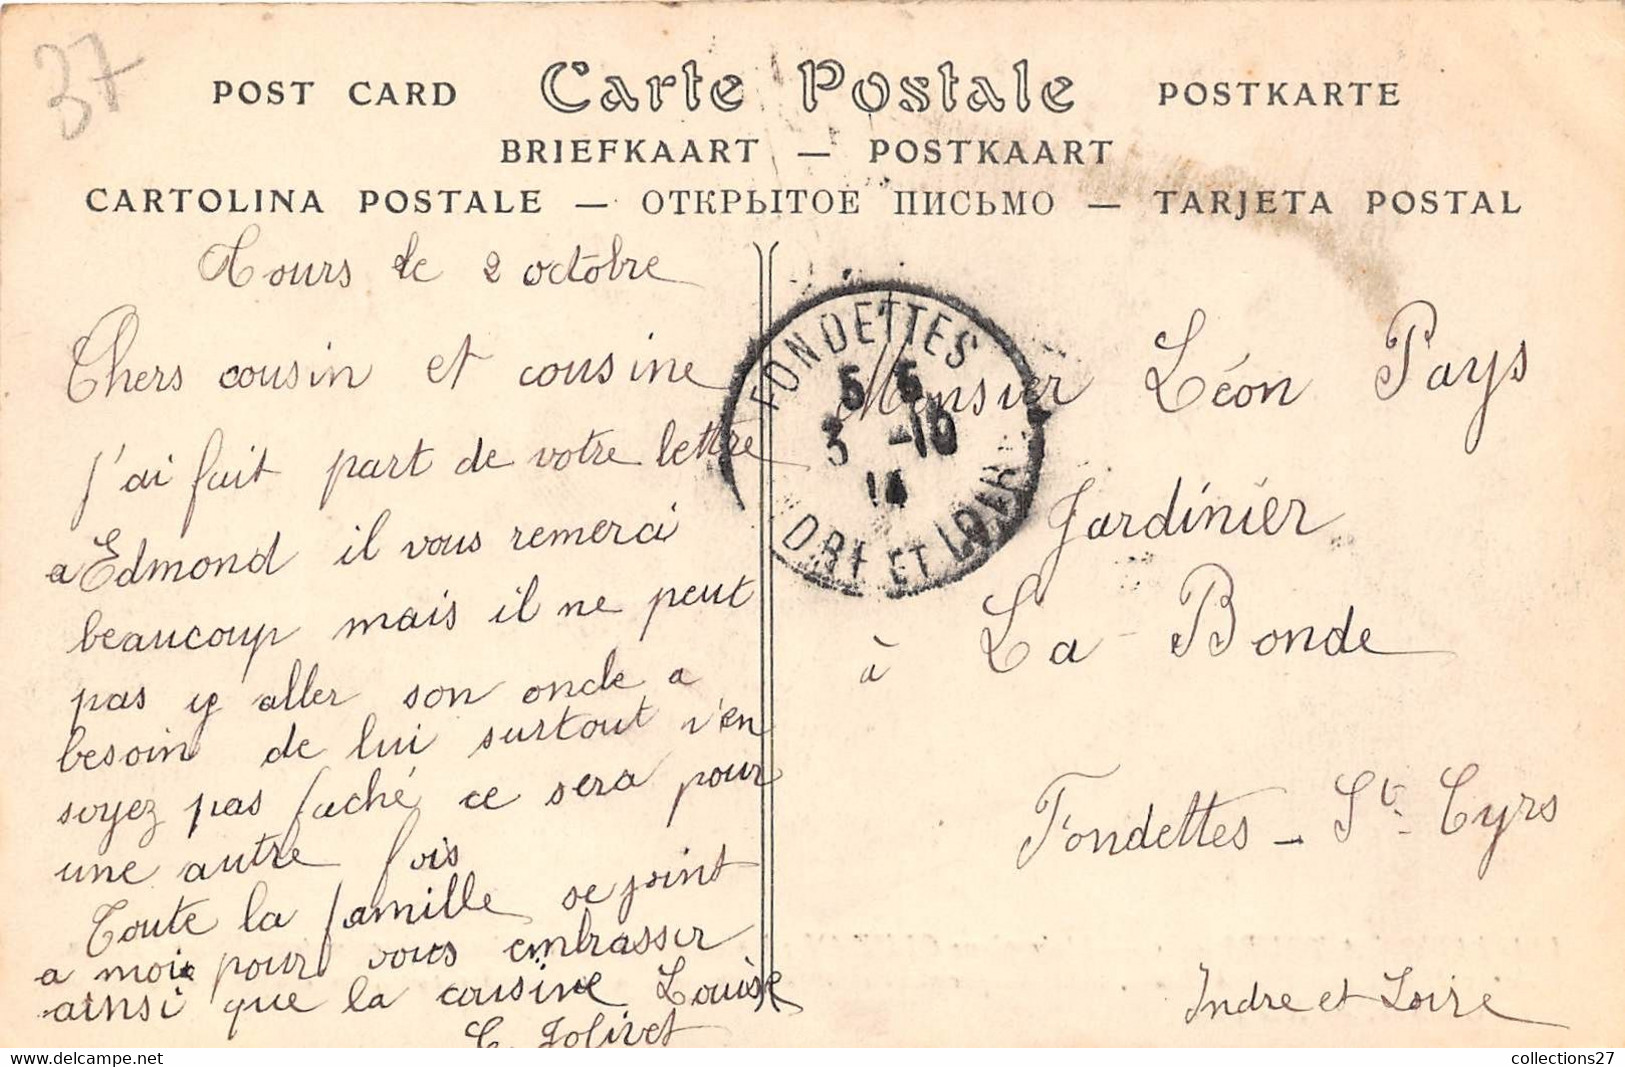 37
POST CARD Carte Postale POSTKARTE
BRIEFKAART — POSTKAART
CARTOLINA POSTALE — ОТКРЫТОЕ ПИСЬМО — TARJETA POSTAL
Tours le 2 octobre
Chers cousin et cousine
j'ai fait part de votre lettre
a Edmond il vous remerci
beaucoup mais il ne peut
pas y aller son oncle a
besoin de lui surtout n'en
soyez pas faché ce sera pour
une autre fois
Toute la famille se joint
a moi pour vous embrasser
ainsi que la cousine Louise
C. Jolivet
FONDETTES
3 -10
14
INDRE ET LOIRE
Monsieur Léon Pays
Jardinier
à La Bonde
Fondettes - St. Cyrs
Indre et Loire
collections27